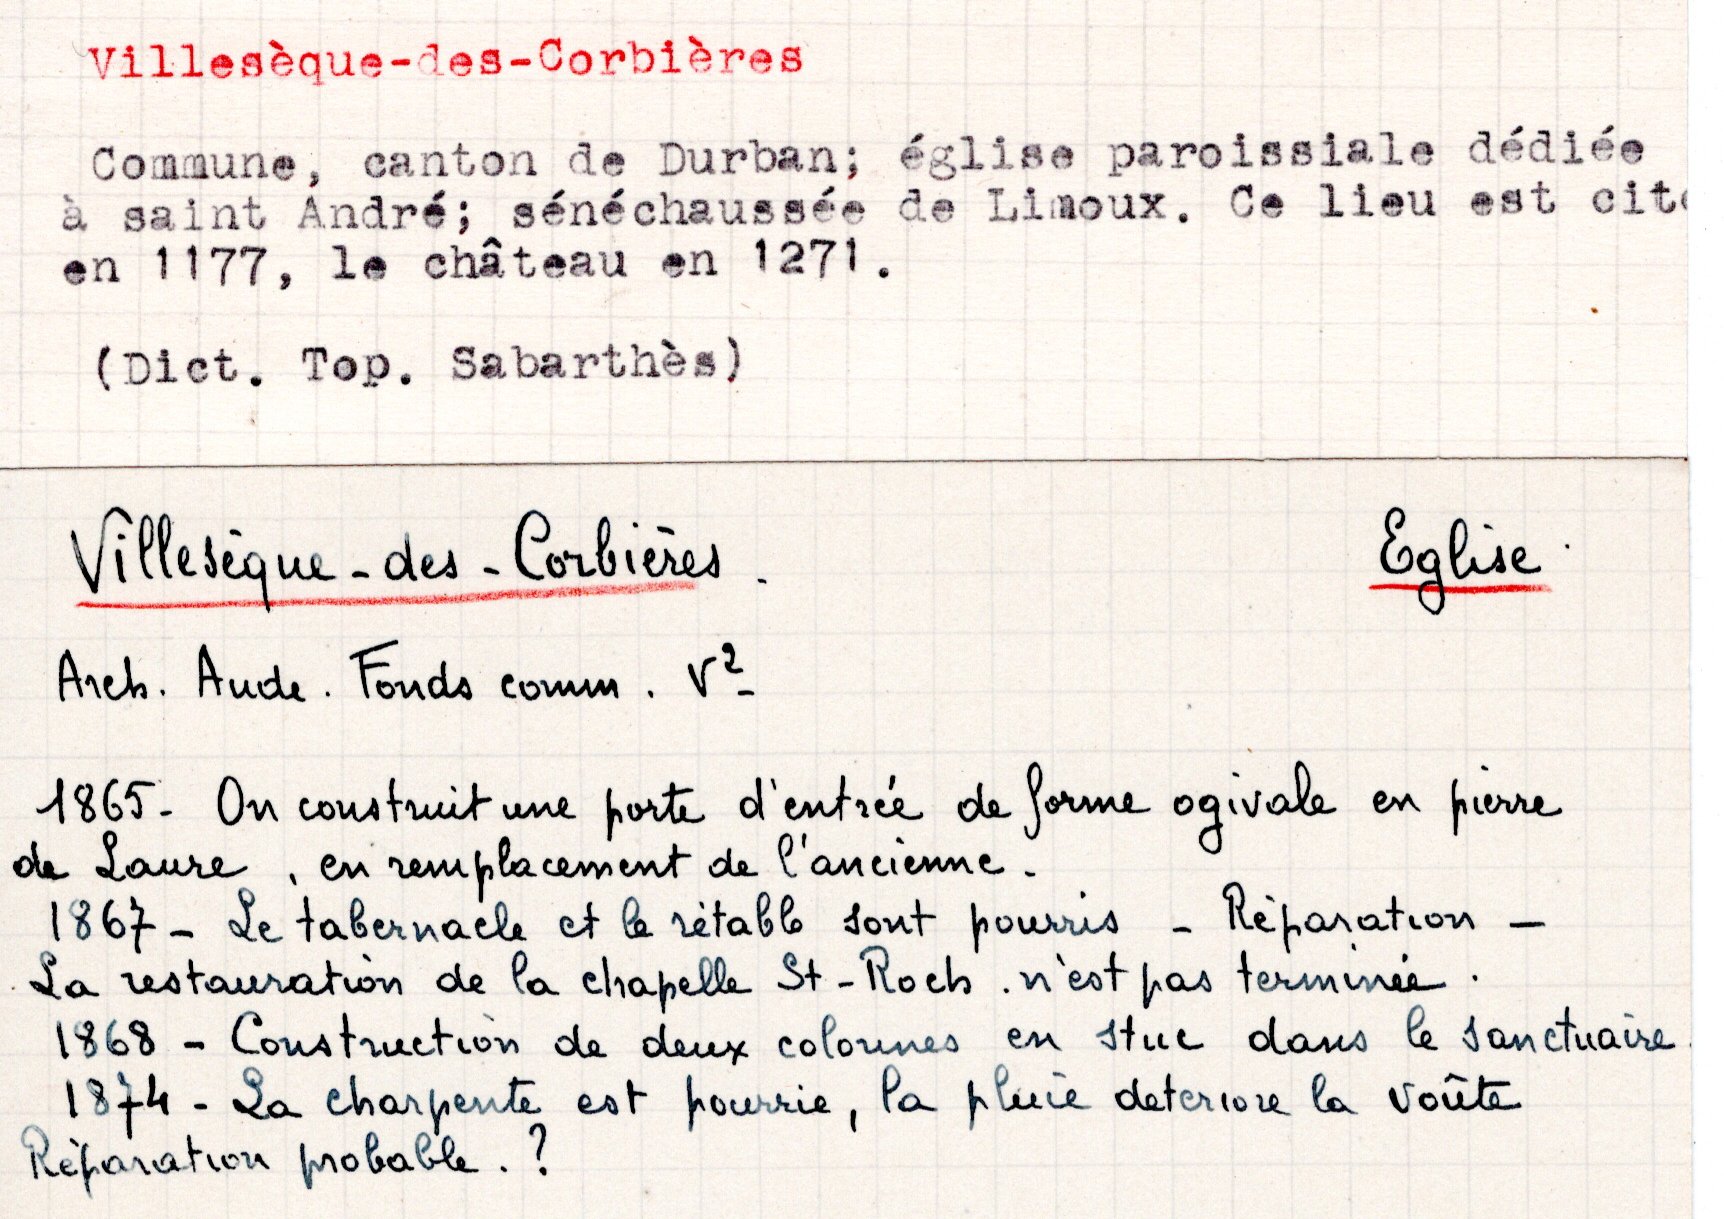 Villesèque-des-Corbières
Commune, canton de Durban; église paroissiale dédiée
à saint André; sénéchaussée de Limoux. Ce lieu est cité
en 1177, le château en 1271.
(Dict. Top. Sabarthès)
Villesèque-des-Corbières. Eglise.
Arch. Aude. Fonds comm. V²
1865- On construit une porte d'entrée de forme ogivale en pierre
de Laure, en remplacement de l'ancienne.
1867- Le tabernacle et le rétable sont pourris - Réparation -
La restauration de la chapelle St-Roch. n'est pas terminée.
1868 - Construction de deux colonnes en stuc dans le sanctuaire.
1874 - La charpente est pourrie, la pluie deteriore la voûte
Réparation probable.?